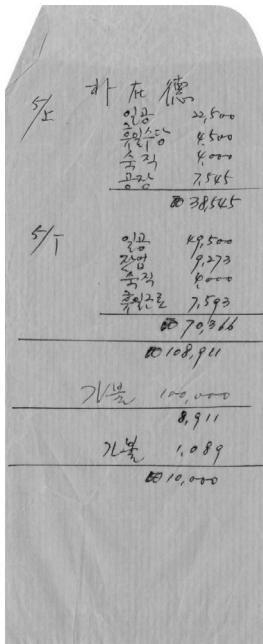 朴 在 德
5/上 일공 22,500
휴일수당 4,500
숙직 4,000
공장 7,545
₩38,545
5/下 일공 49,500
잔업 9,273
숙직 4,000
휴일근로 7,593
₩70,366
₩108,911
가불 100,000
8,911
가불 1,089
₩10,000